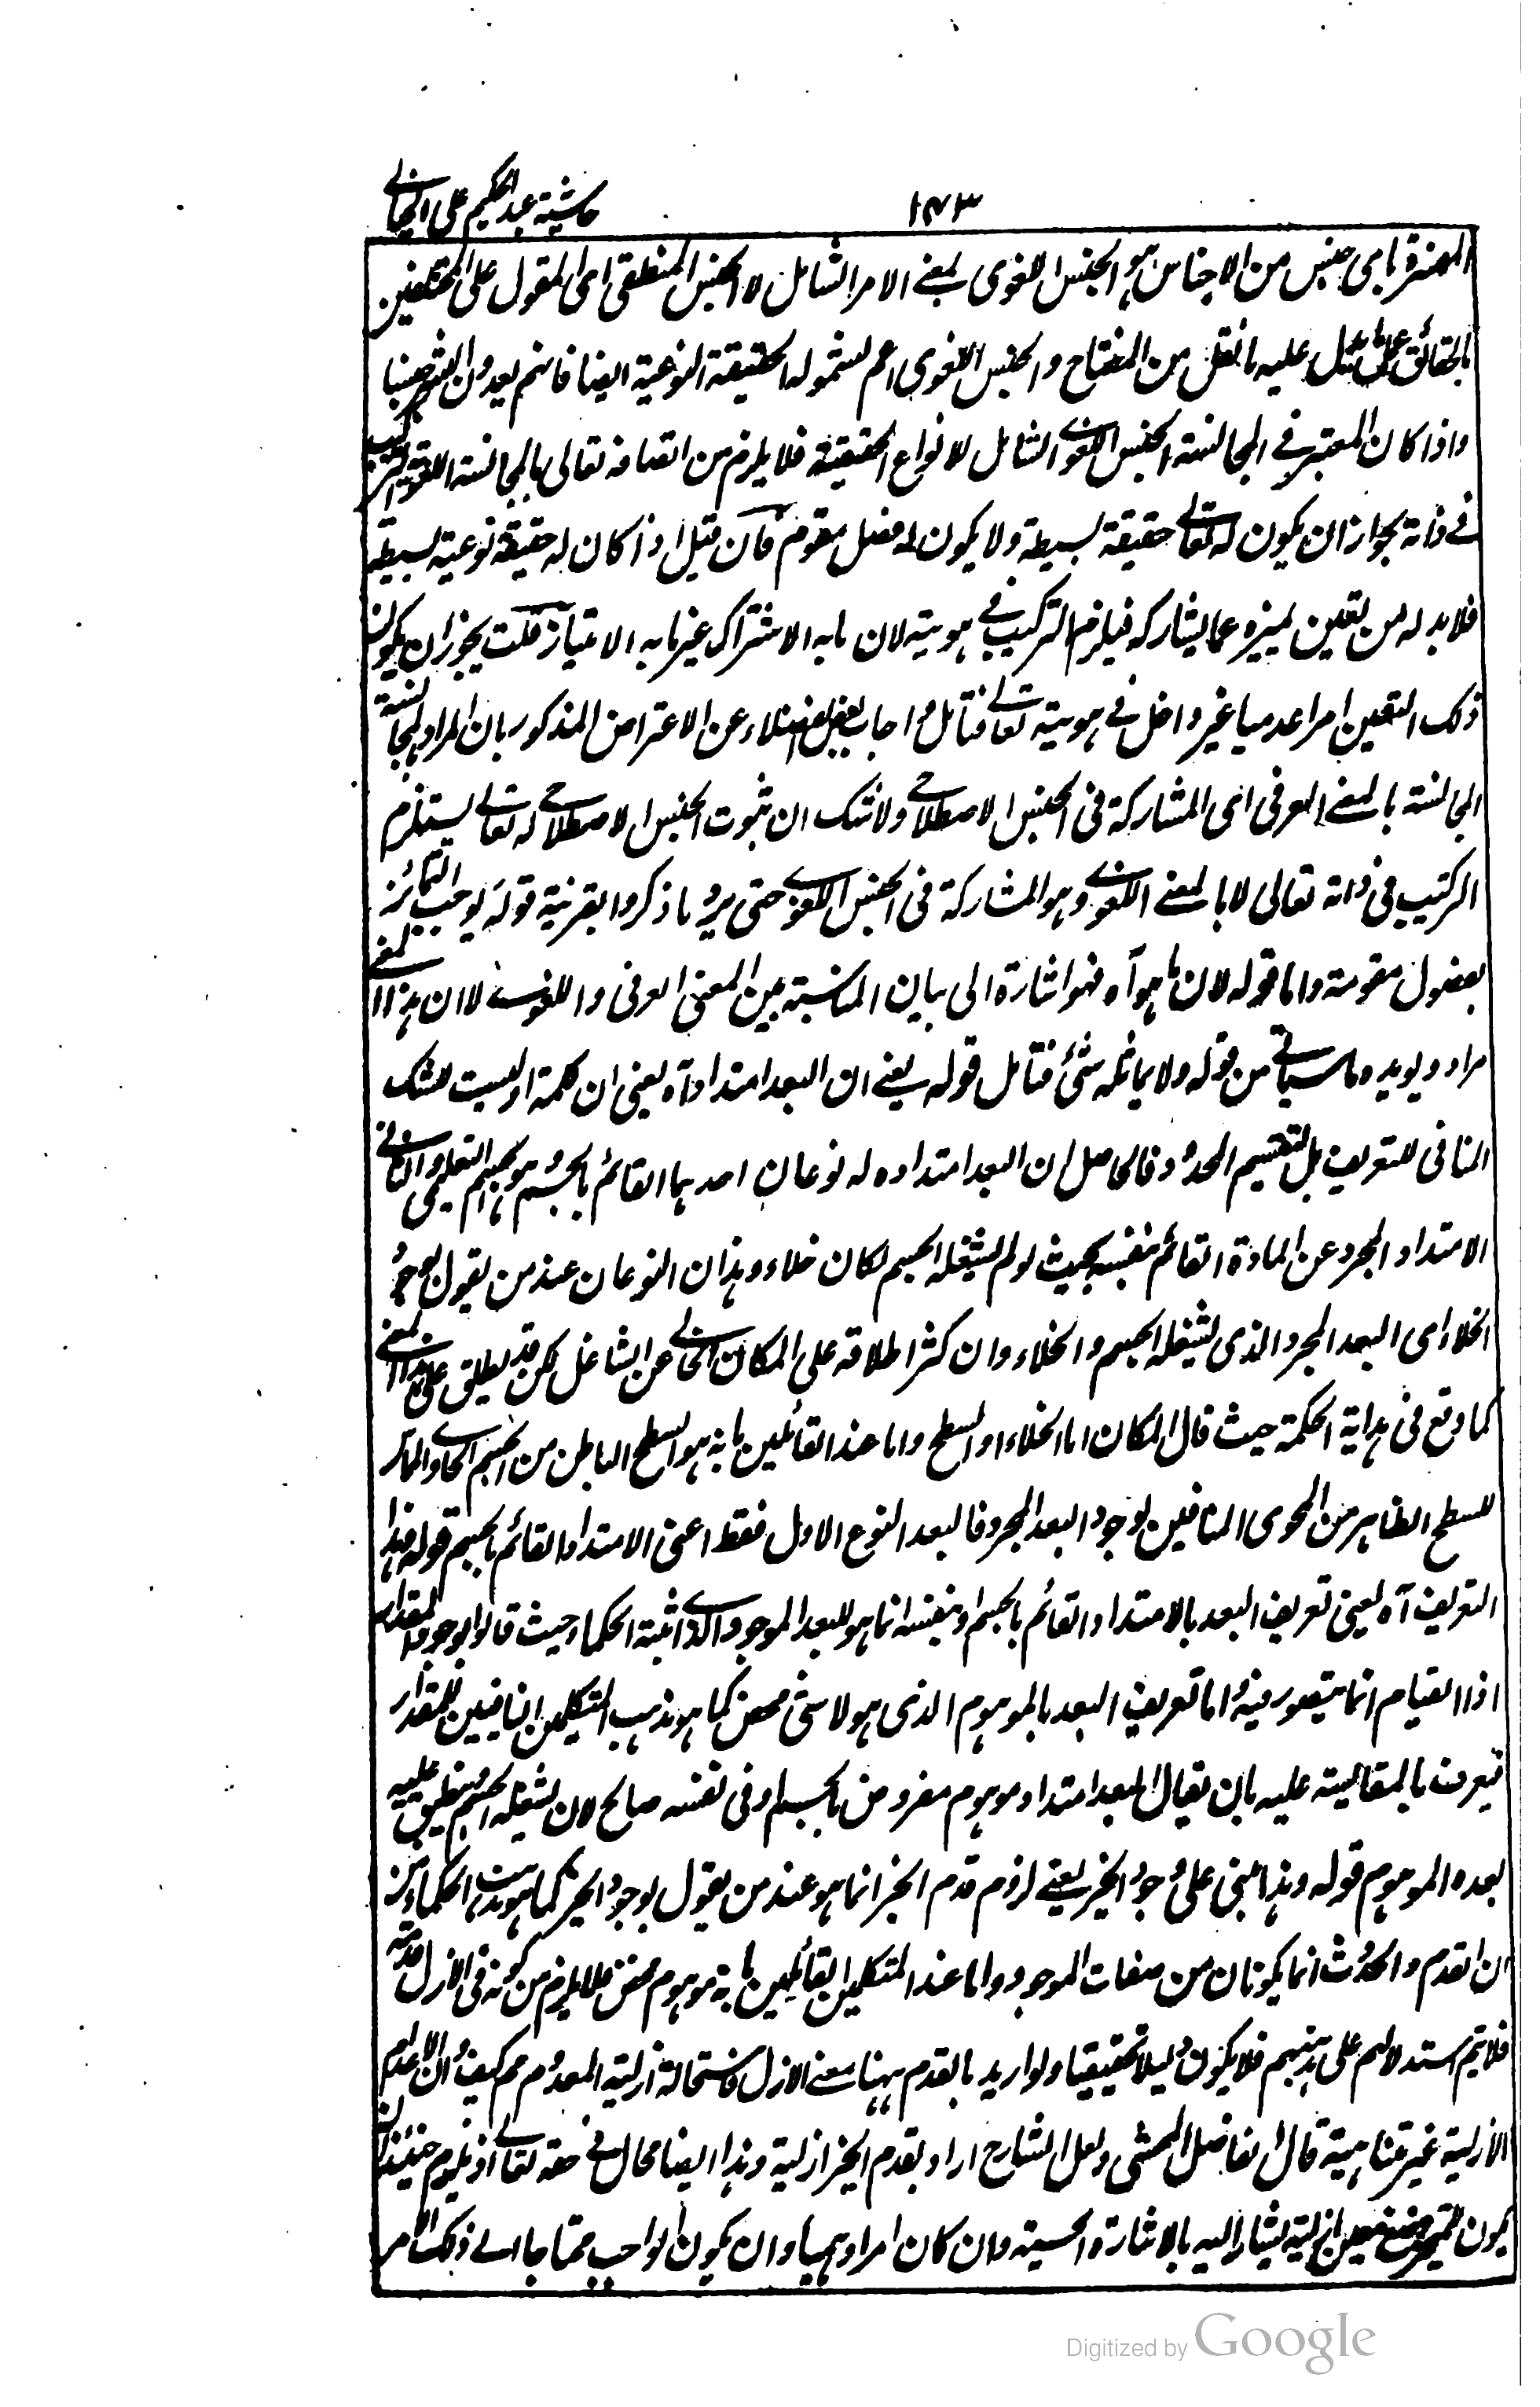 ١٤٣
حاشية عبد الحكيم على الخيالي
المفسرة باى جنس من الاجناس هو الجنس اللغوى بمعنى الامر الشامل لا الجنس المنطقى اى المقول على المختلفين
بالحقائق على ما يدل عليه ما نقل من المفتاح والجنس اللغوى اعم لشموله الحقيقة النوعية ايضا فانهم يعدون البشر جنسا
واذا كان المعتبر فى المجانسة الجنس اللغوى الشامل للانواع الحقيقية فلا يلزم من اتصافه تعالى بالمجانسة اللغوية التركيب
فى ذاته لجواز ان يكون له تعالى حقيقة بسيطة ولا يكون له فصل مقوم فان قيل اذا كان له حقيقة نوعية بسيطة
فلا بد له من تعين يميزه عما يشاركه فيلزم التركيب فى هويته لان ما به الاشتراك غير ما به الامتياز قلت يجوز ان يكون
ذلك التعين امرا عدميا غير داخل فى هويته تعالى فتامل واجاب بعض الفضلاء عن الاعتراض المذكور بان المراد بالمجانسة
المجانسة بالمعنى العرفى اى المشاركة فى الجنس الاصطلاحى ولا شك ان ثبوت الجنس الاصطلاحى له تعالى يستلزم
التركيب فى ذاته تعالى لا بالمعنى اللغوى وهو المشاركة فى الجنس اللغوى حتى يرد ما ذكروا بقرينة قوله يوجب التمايز
بفصول مقومة واما قوله لان ما هو آه فهو اشارة الى بيان المناسبة بين المعنى العرفى واللغوى لا ان هذا المعنى
مراد ويؤيده ما سياتى من قوله ولا يماثله شئ فتامل قوله يعنى ان البعد امتداد آه يعنى ان كلمة او ليست للشك
المنافى للتعريف بل لتقسيم المحدود فالحاصل ان البعد امتداد له نوعان احدهما القائم بالجسم وهو الجسم التعليمى والثانى
الامتداد المجرد عن المادة القائم بنفسه بحيث لو لم يشغله الجسم لكان خلاء وهذان النوعان عند من يقول بوجود
الخلاء اى البعد المجرد الذى يشغله الجسم والخلاء وان كثر اطلاقه على المكان الخالى عن الشاغل لكن قد يطلق على هذا المعنى
كما وقع فى هداية الحكمة حيث قال المكان اما الخلاء او السطح واما عند القائلين بانه هو السطح الباطن من الجسم الحاوى المماس
للسطح الظاهر من المحوى المنافين لوجود البعد المجرد فالبعد النوع الاول فقط اعنى الامتداد القائم بالجسم قوله هذا
التعريف آه يعنى تعريف البعد بالامتداد القائم بالجسم او بنفسه انما هو للبعد الموجود الذى اثبته الحكماء حيث قالوا بوجود المقدار
اذ القيام انما يتصور فيه واما تعريف البعد بالموهوم الذى هو لا شئ محض كما هو مذهب المتكلمين النافين للمقدار
فيعرف بالمقايسة عليه بان يقال البعد امتداد موهوم مفروض بالجسم او فى نفسه صالح لان يشغله الجسم وينطبق عليه
بعده الموهوم قوله وهذا مبنى على وجود الحيز يعنى لزوم قدم الحيز انما هو عند من يقول بوجود الحيز كما هو مذهب الحكماء من
ان القدم والحدوث انما يكونان من صفات الموجود واما عند المتكلمين القائلين بانه موهوم محض فلا يلزم من كونه فى الازل قدمه
فلا يتم استدلالهم على مذهبهم فلا يكون دليلا تحقيقيا ولو اريد بالقدم ههنا معنى الازل فاستحالة ازلية المعدوم مم كيف وان الاعدام
الازلية غير متناهية قال الفاضل المحشى ولعل الشارح اراد بقدم الحيز ازلية وهذا ايضا محال فى حقه تعالى اذ يلزم حينئذ ان
يكون ازلية يشار اليه بالاشارة الحسية وان كان امرا وهميا وان يكون الواجب محتاجا الى ذلك الامر
Digitized by Google